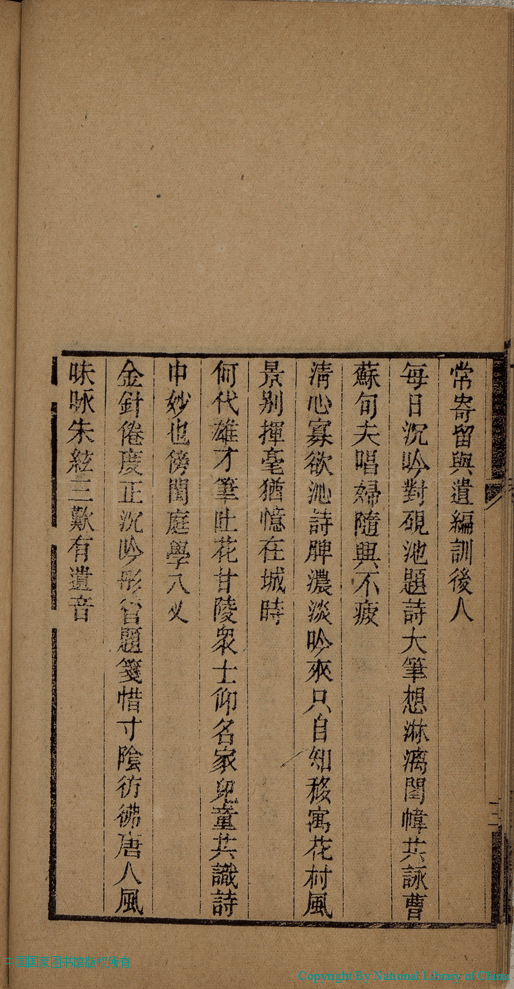 常寄留與遺編訓後人
每日沉吟對硯池題詩大筆想淋漓閨幃共詠曹
蘇句夫唱婦隨興不疲
清心寡欲沁詩脾濃淡吟來只自知移寓花村風
景别揮毫猶憶在城時
何代雄才筆吐花甘陵衆士仰名家兒童共識詩
中妙也傍閨庭學八乂
金針倦度正沉吟彤管題箋惜寸陰彷彿唐人風
味咏朱絃三歎有遺音
Copyright By National Library of China